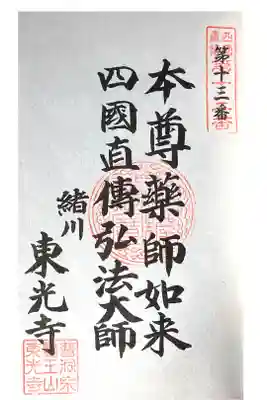 第十三番
本尊薬師如来
四國直傳弘法大師
緒川
東光寺
曹洞宗
東光寺